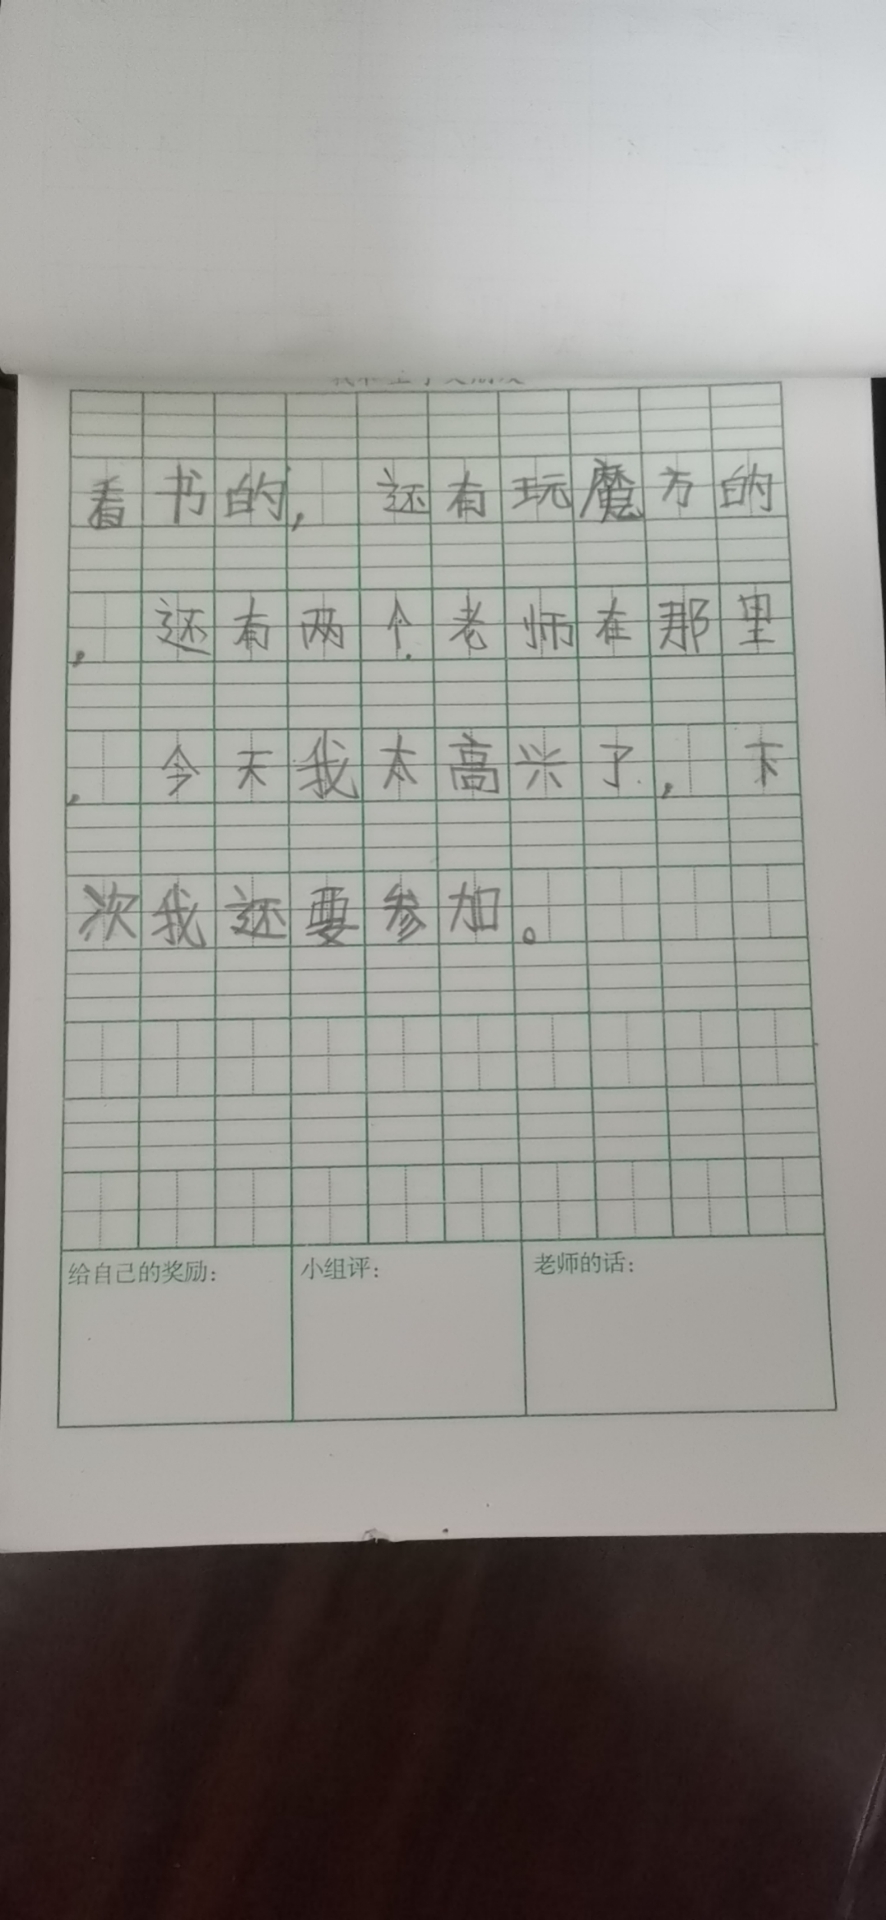 看书的,还有玩魔方的
,还有两个老师在那里
,今天我太高兴了,下
次我还要参加。
给自己的奖励:
小组评:
老师的话: